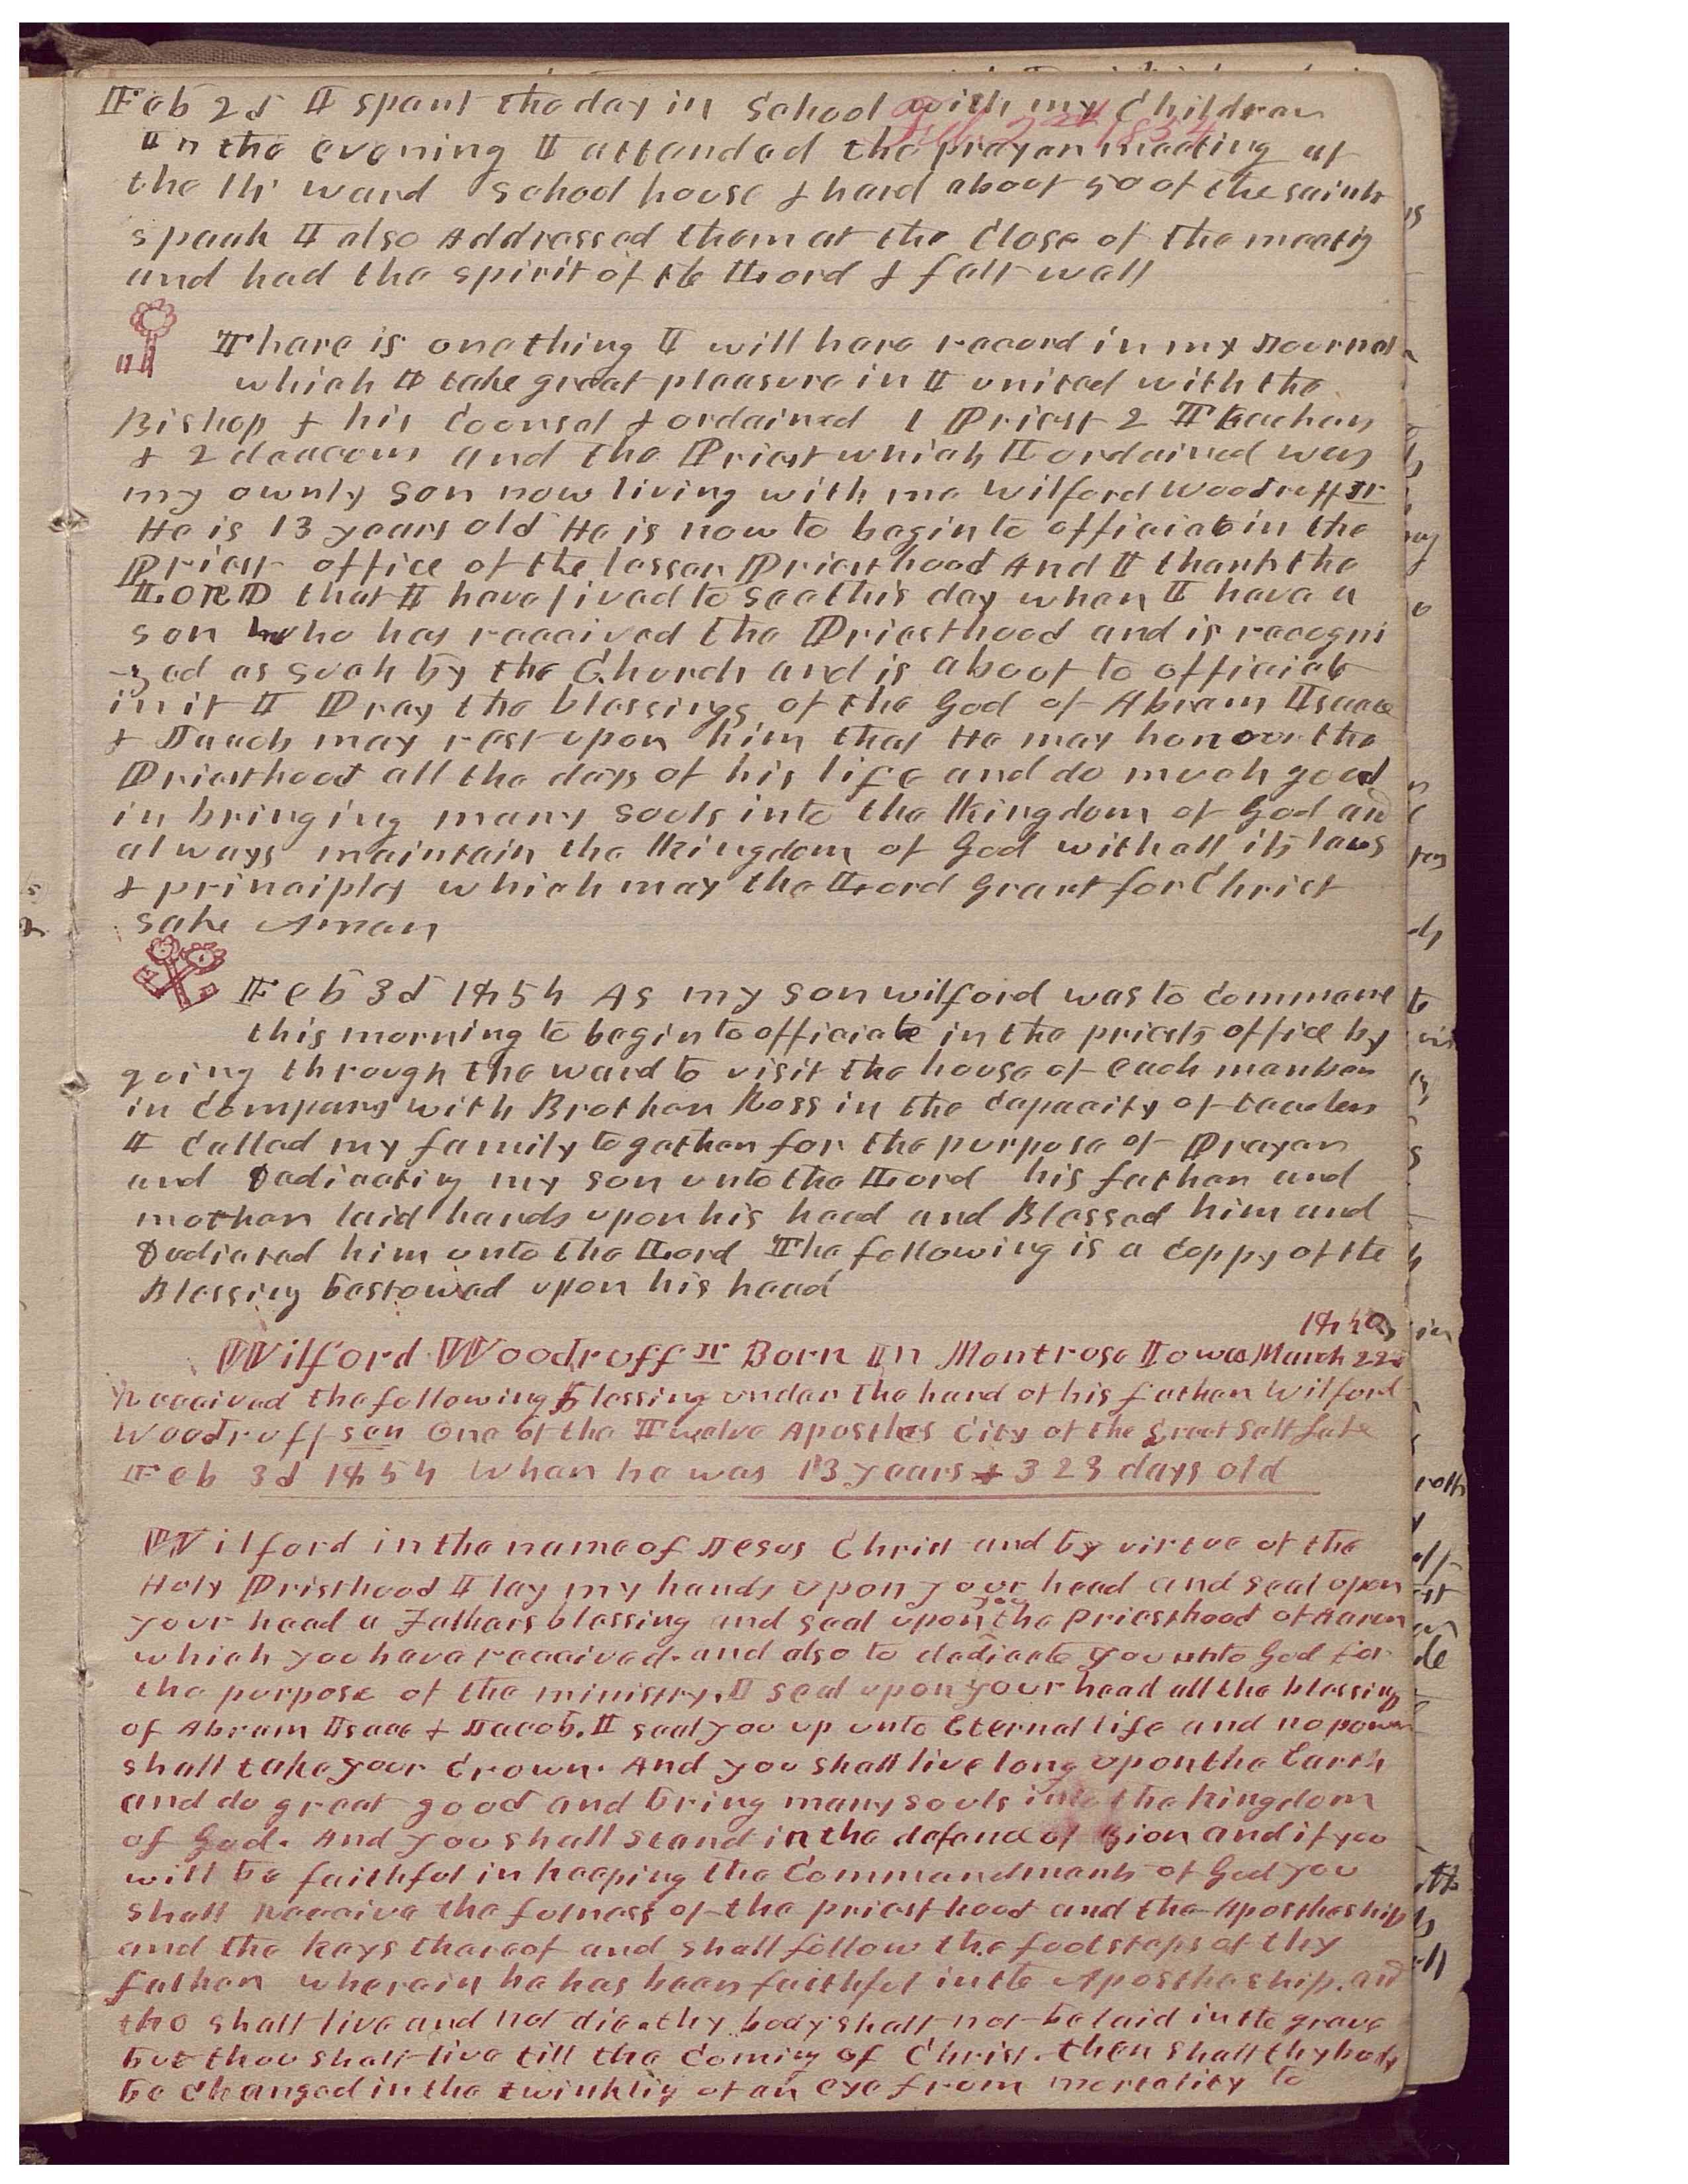 Feb 2d I spent the day in School with my Children
Feb 2nd 1854
In the evening I attended the prayer meeting at
the 14 ward School house & hard about 50 of the saints
speak I also Addressed them at the Close of the meetig
and had the spirit of the Lord & felt well
There is one thing I will here record in my Journal
which I take great pleasure in I united with the
Bishop & his Counsel & ordained 1 Priest 2 Teachers
& 2 deacons and the Priest which I ordained was
my ownly son now living with me Wilford Woodruff Jr
He is 13 years old He is now to begin to officiate in the
Priest office of the lesser Priesthood And I thank the
LORD that I have lived to see this day when I have a
son who has received the Priesthood and is recogni
-zed as such by the Church and is about to officiate
in it I Pray the blessings of the God of Abram Isaac
& Jacob may rest upon him that He may honour the
Priesthood all the days of his life and do much good
in bringing many souls into the Kingdom of God and
always maintain the Kingdom of God with all its laws
& principles which may the Lord Grant for Christ
sake Amen
Feb 3d 1854 As my son wilford was to commence
this morning to begin to officiate in the priests office by
going through the ward to visit the house of each member
in Company with Brother Ross in the Capacity of teachers
I Called my family together for the purpose of Prayer
and Dedicatig my son unto the Lord his father and
mother laid hands upon his head and Blessed him and
Dedicated him unto the Lord The following is a Coppy of the
Blessing bestowed upon his head
1840
Wilford Woodruff Jr Born In Montrose Iowa March 22d
Received the following Blessing under the hand of his father Wilford
Woodruff sen One of the Twelve Apostles City of the Great Salt Lake
Feb 3d 1854 When he was 13 years & 323 days old
Wilford in the name of Jesus Christ and by virtue of the
Holy Pristhood I lay my hands upon your head and seal upon
you
your head a Fathers blessing and seal upon the Priesthood of Aaron
which you have received. and also to dedicate you unto God for
the purpose of the ministry. I seal upon your head all the blessings
of Abram Isaac & Jacob. I seal you up unto Eternal life and no power
shall take your Crown. And you shall live long upon the Earth
and do great good and bring many souls into the kingdom
of God. And you shall stand in the defence of Zion and if you
will be faithful in keeping the Commandments of God you
shall Receive the fulness of the priesthood and the Apostleship
and the keys thereof and shall follow the footsteps of thy
father wherein he has been faithful in the Apostleship. and
tho shall live and not die. thy body shall not be laid in the grave
but thou shalt live till the Coming of Christ. then shall thy body
be Changed in the twinklig of an eye from mortality to